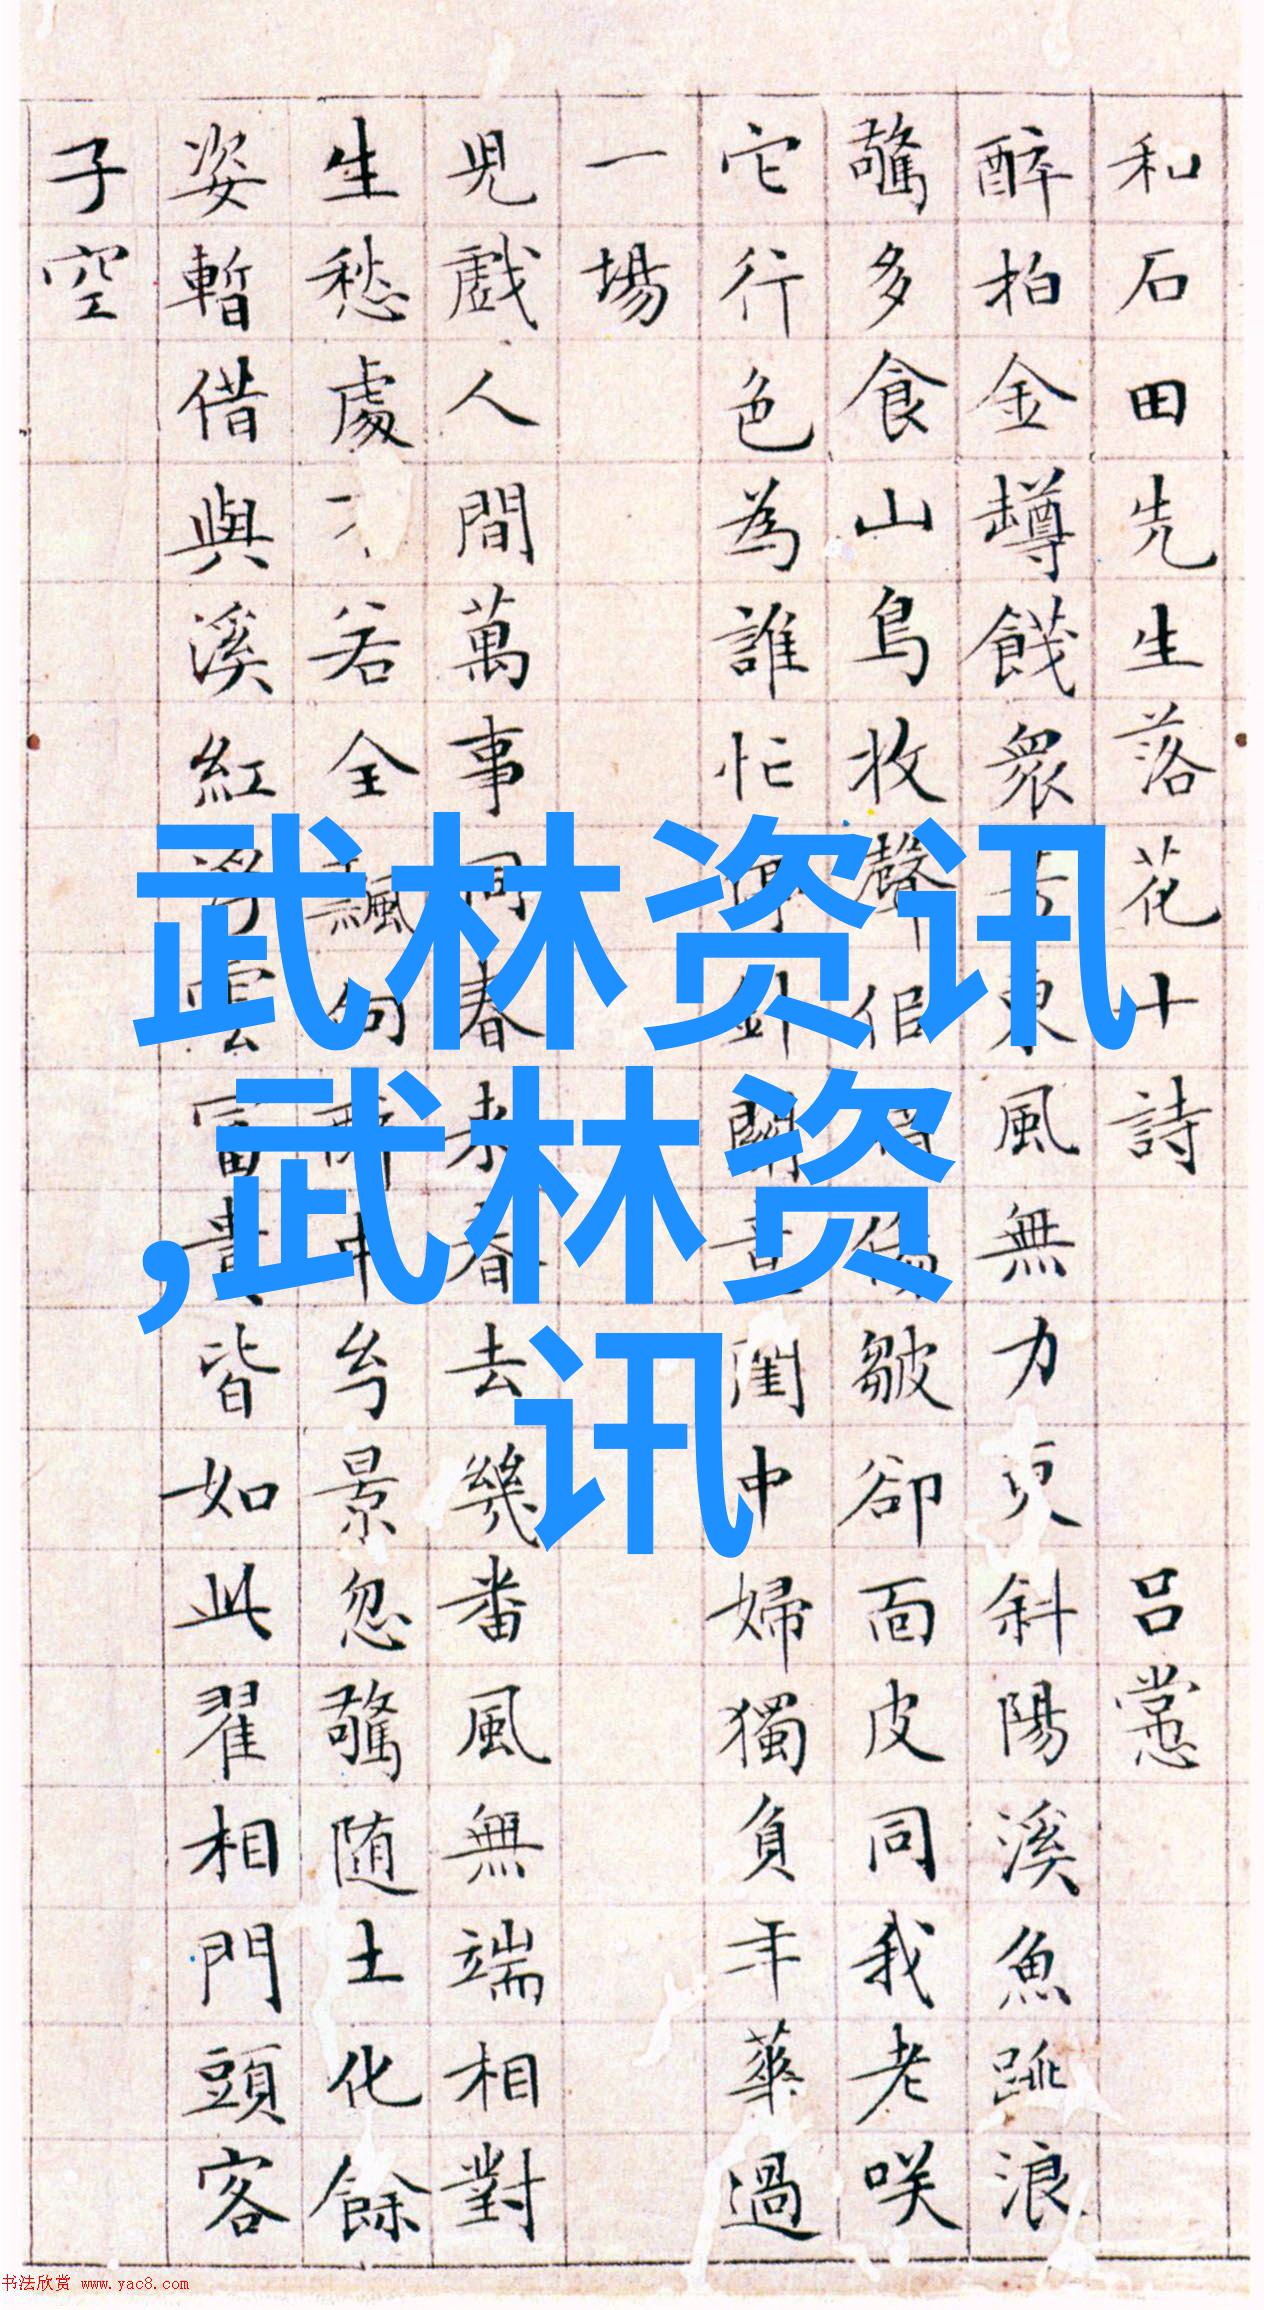 和石田先生落花十詩 吕㦂
醉拍金罇餞衆東風無力更斜陽溪魚跳浪
驚多食山鳥收聲皺卻面皮同我老咲
它行色為誰忙停針鬭閨中婦獨負年華過
一場
兒戲人間萬事同春来春去幾番風無端相對
生愁處不若全飄向醉中景忽驚随土化餘
姿暫借與溪紅浮雲富貴皆如此翟相門頭客
子空
武林资讯
,武林资
讯
书法欣赏 www.yac8.com